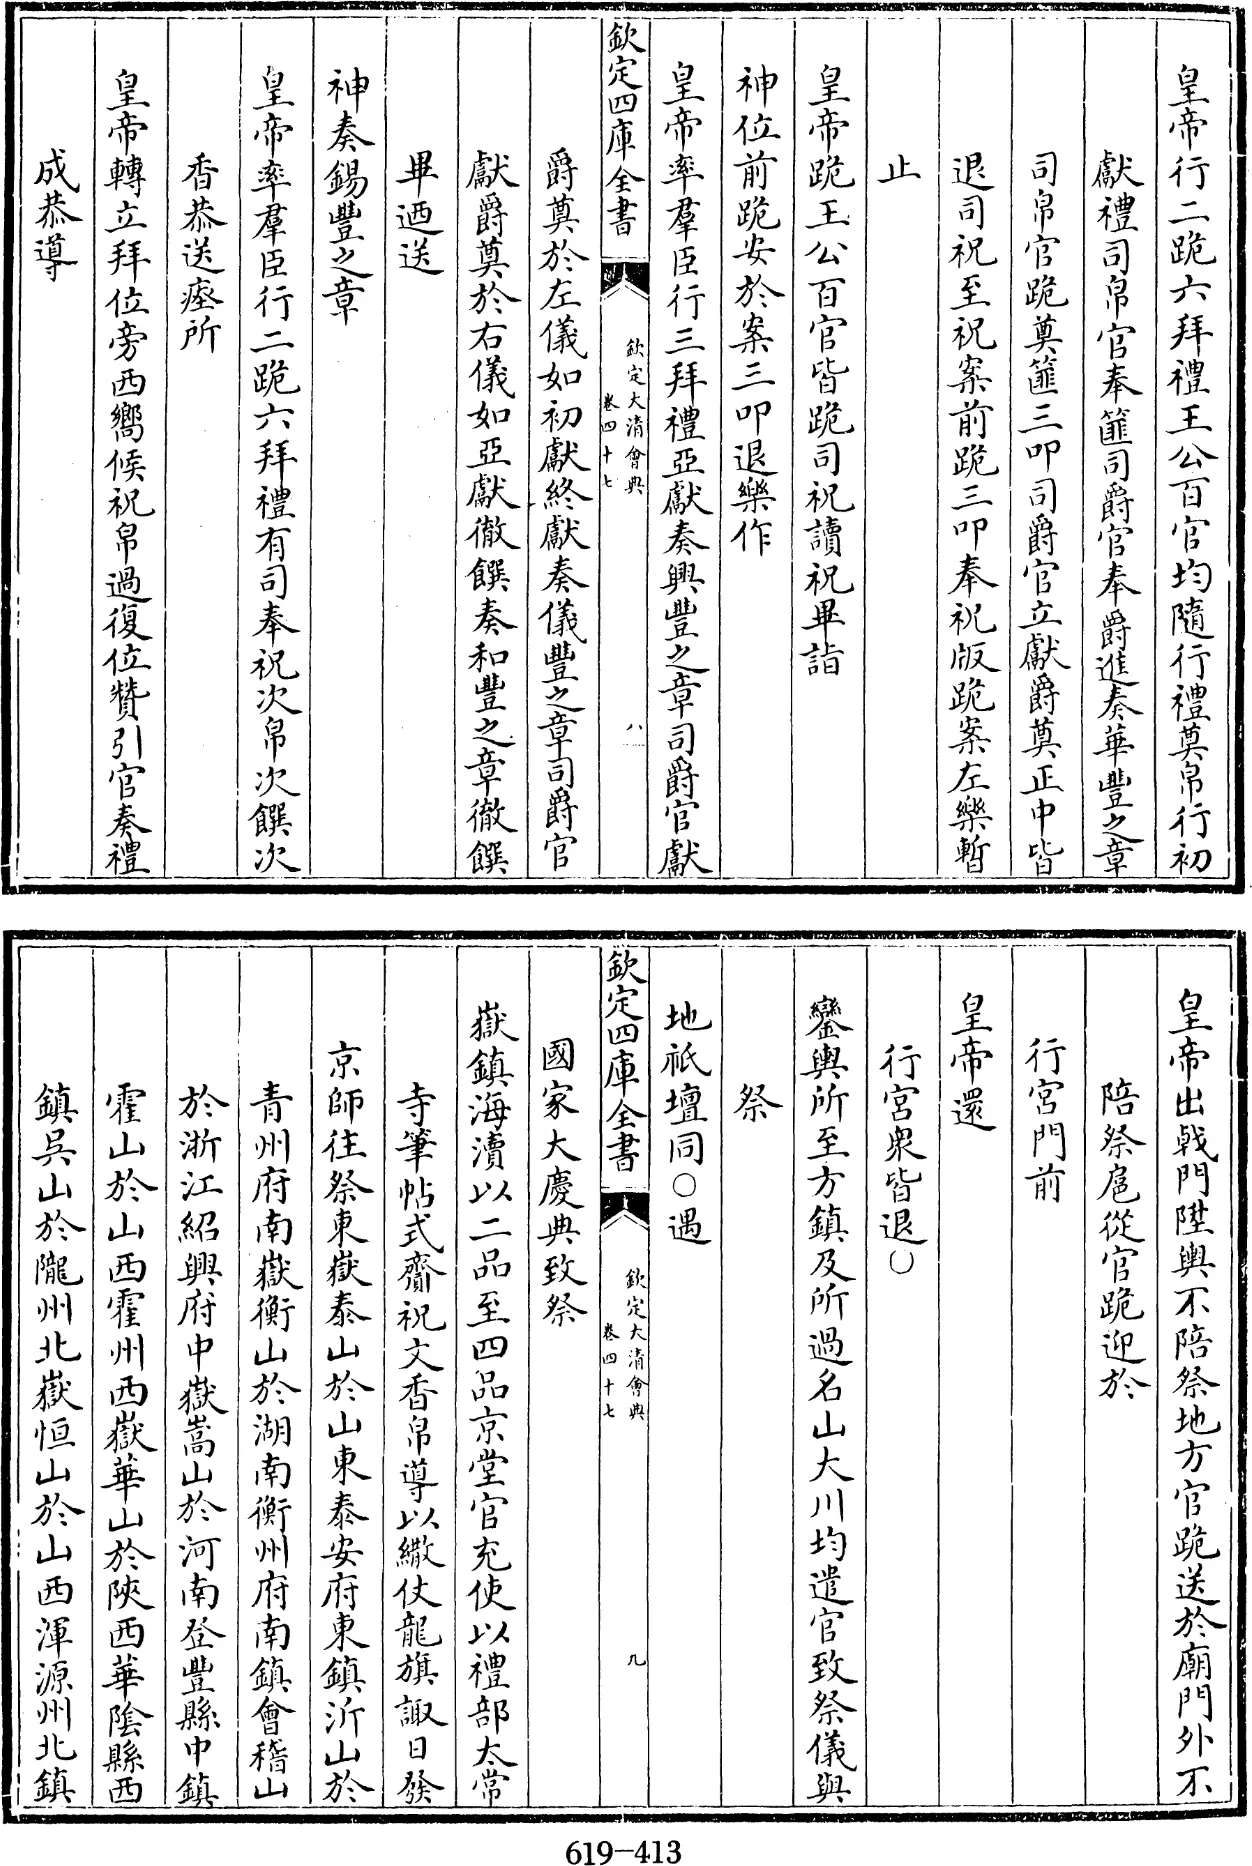 皇帝行二跪六拜禮王公百官均隨行禮奠帛行初
獻禮司帛官奉篚司爵官奉爵進奏華豐之章
司帛官跪奠篚三叩司爵官立獻爵奠正中皆
退司祝至祝案前跪三叩奉祝版跪案左樂暫
止
皇帝跪王公百官皆跪司祝讀祝畢詣
神位前跪安於案三叩退樂作
皇帝率羣臣行三拜禮亞獻奏興豐之章司爵官獻
欽定四庫全書
欽定大清會典
卷四十七
八
爵奠於左儀如初獻終獻奏儀豐之章司爵官
獻爵奠於右儀如亞獻徹饌奏和豐之章徹饌
畢迺送
神奏錫豐之章
皇帝率羣臣行二跪六拜禮有司奉祝次帛次饌次
香恭送瘞所
皇帝轉立拜位旁西嚮候祝帛過復位贊引官奏禮
成恭導
皇帝出戟門陞輿不陪祭地方官跪送於廟門外不
陪祭扈從官跪迎於
行宮門前
皇帝還
行宮衆皆退○
鑾輿所至方鎮及所過名山大川均遣官致祭儀與
祭
地祇壇同○遇
欽定四庫全書
欽定大清會典
卷四十七
九
國家大慶典致祭
嶽鎮海瀆以二品至四品京堂官充使以禮部太常
寺筆帖式齎祝文香帛導以繖仗龍旗諏日發
京師往祭東嶽泰山於山東泰安府東鎮沂山於
青州府南嶽衡山於湖南衡州府南鎮會稽山
於浙江紹興府中嶽嵩山於河南登豐縣中鎮
霍山於山西霍州西嶽華山於陝西華陰縣西
鎮吳山於隴州北嶽恒山於山西渾源州北鎮
619-413